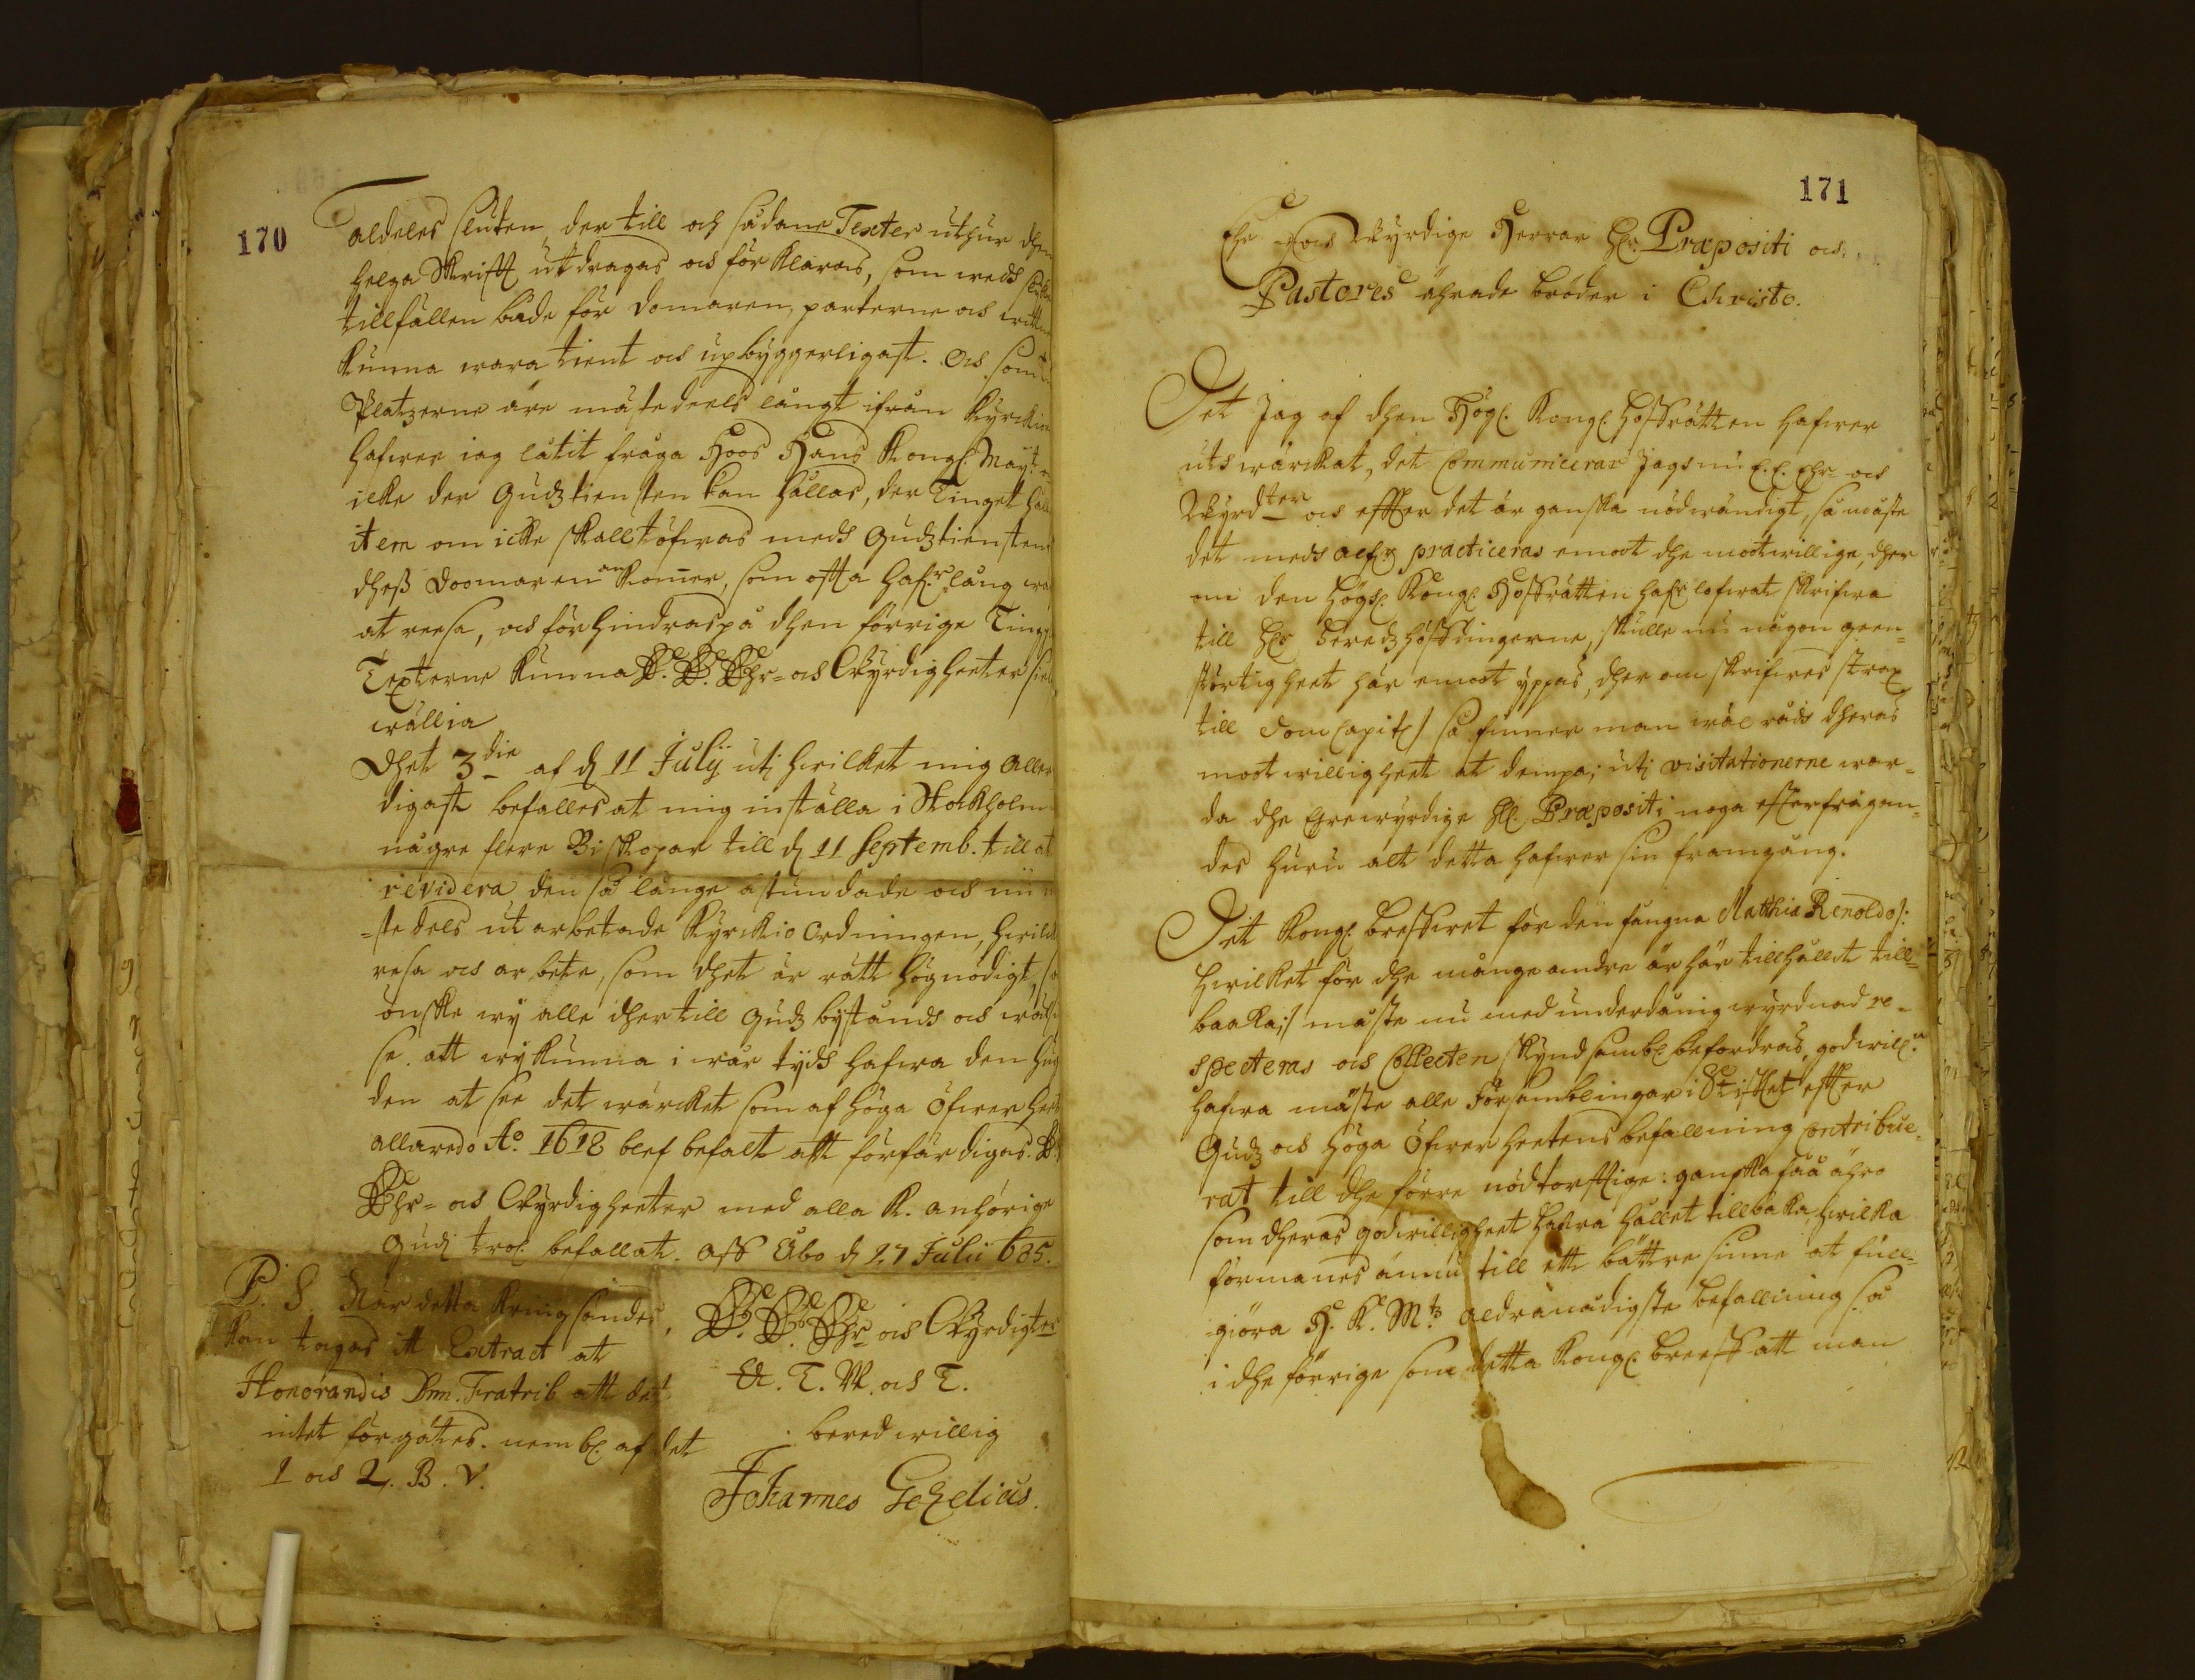 170
aldeles sluten der till och sådane Texter uthur dhen
helga Skrifft utdragas och förklaras, som medh
tillfällen både för domaren, parterne och
kunna wara tient och upbyggerligast. Och som
Platzerne äre måstedeels långt ifrån Kyrckian
hafwer iag låtit fråga Hoos Hans Kongl. Mayt.
icke der Gudztiensten kan hållas, der Tinget
item om icke skall töfwas medh Gudztiensten
dhess Doomaren an komer, som offta hafr. lång
at reesa, och förhindras på dhen förrige Tings
Texterne kunna E. E. Ehr- och Wyrdigheeter
wällia
Dhet 3die af d. 11 Julij uti hwilket mig Aller
digast befalles at mig inställa i Stockholm
någre flere Biskopar till d. 11 Septemb. till at
revidera den så länge åstundade och nu
stedels utarbetade Kyrckio Ordningen, hwilket
resa och arbete, som dhet är rätt högnödigt, så
önske wy alle dhertill Gudz bystånd och
se. att wy kunna i wår tydh hafwa den
den at see det wärcket som af höga Öfwer
allaredo Ao. 1618 blef befalt att förfärdigas. E.
Ehr- och Wyrdigheeter med alla K. anhörige
Gudi trol. befallat. Aff Åbo d. 17 Julii 685.
P. S. När detta kring sändes,
kan tagas itt Extract at
Honorandis Dnn. Fratrib. att det
intet förgätes. nembl. af det
1 och 2. B. V.
E. E. Ehr och Wyrdigter
U. T. W. och T.
beredwillig
Johannes Gezelius.
171
Ehr och Wyrdige Herrar Hr. Præpositi och
Pastores ährade bröder i Christo.
Det Jag af dhen Högl. Kongl. Hoffrätten hafwer
utwärckat, det Communicerar Jagh nu E. E. Ehr- och
Wyrdter och effter det är ganska nödwändigt, så måste
det medh practiceras emoot dhe mootwillige, dher
om den Högl. Kongl. Hoffrätten hafr. lofwat skrifwa
till Hr. Heredzhöffdingerne, skulle nu någon geen-
störtigheet här emoot yppas, dher om skrifwes strax
till DomCapitl. så finner man wäl rådh dheras
mootwilligheet at dempa; uti visitationerne war-
da dhe Ehrewyrdige Hl. Præpositi noga effterfrågan-
des huru alt detta hafwer sin framgång.
Det Kongl. breffwet för den fångna Matthia Renoldo /:
hwilket för dhe många andre är här tillhållit till-
baaka :/ måste nu med underdånig wyrdnad re-
specteras och Collecten skyndsambl. befordras, godwill.n
hafwa måste alle Församblingar i Stifftet effter
Gudz och höga Öfwerheetens befallning contribue-
rat till dhe förre nödtorfftige: ganska få ähro
som dheras godwilligheet hafwa hållet tillbaka, hwilka
förmanes ännu till ett bättre sinne at full-
giöra H. K. Mtz aldranådigste befallning så
i dhe förrige som detta Kongl. breeff att man